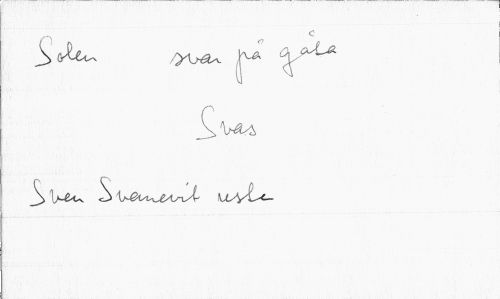 Solen svar på gåta
Svas
Sven Svanevit reste